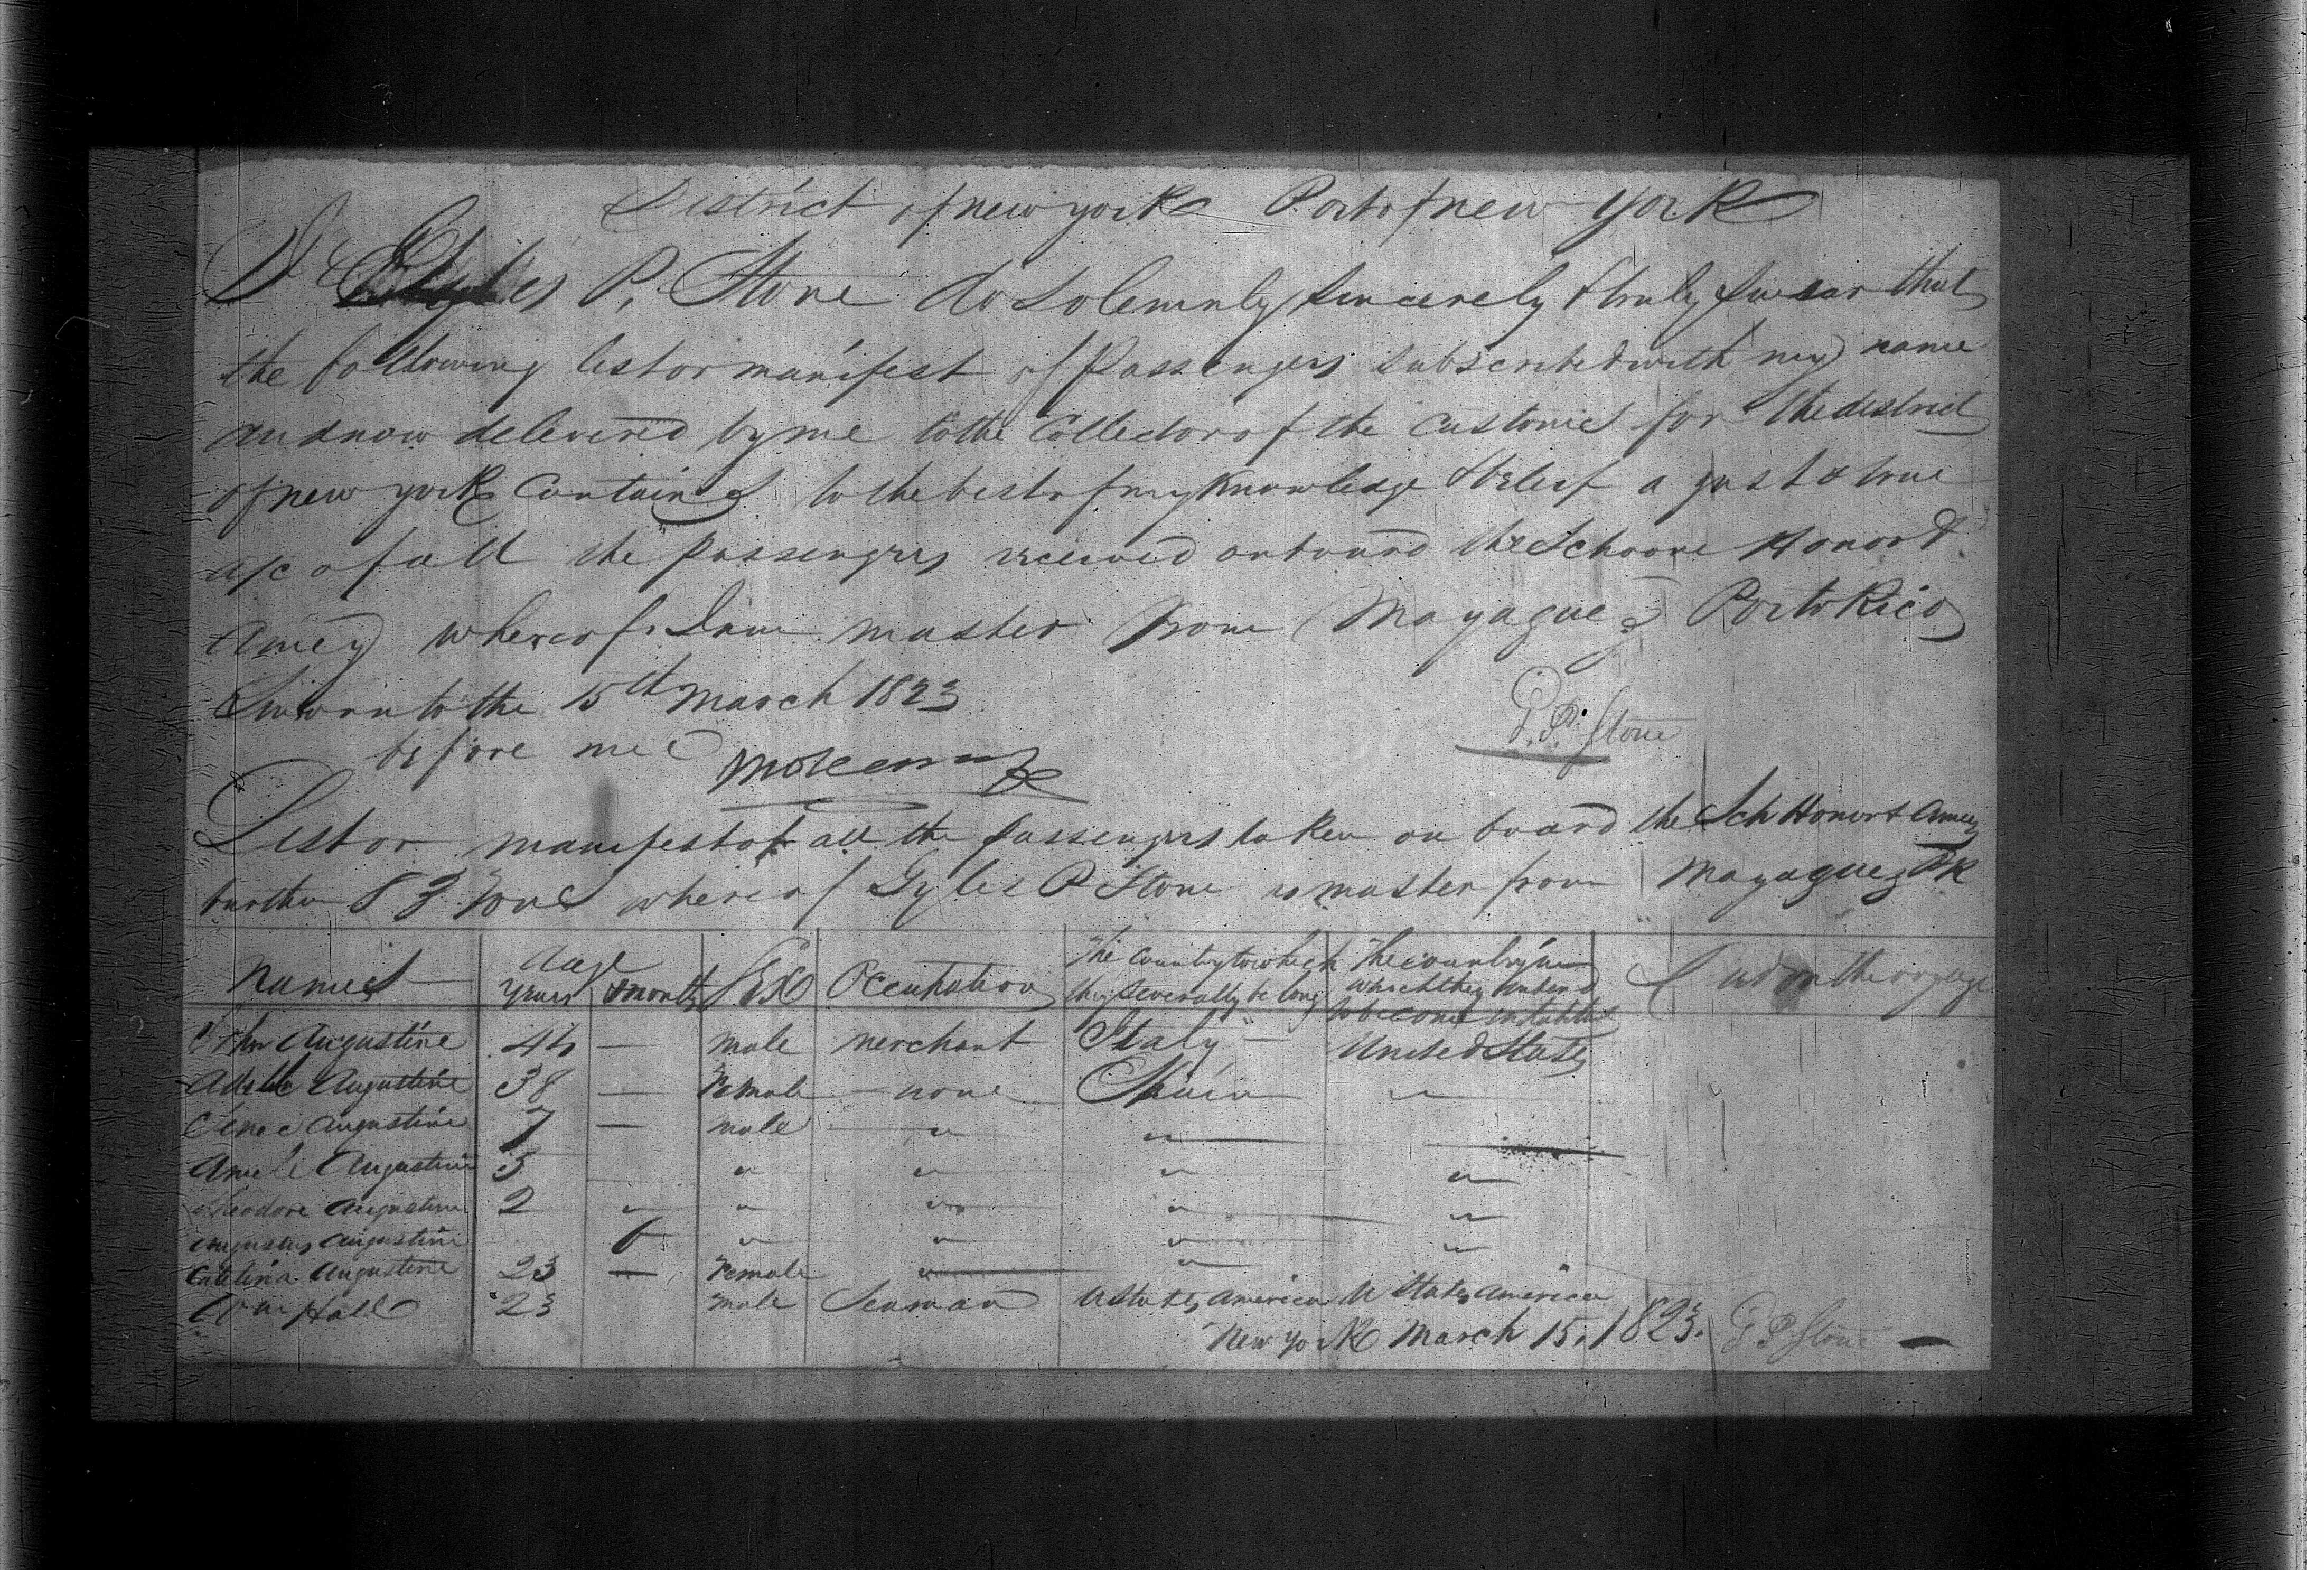 District of new york Port of new york
I Gyles P. Stone do Solemnly Sincerely & truly Swear that
the following list or manifest of Passengers subscribed with my name
and now delevered by me to the Collector of the Customs for the district
of new york Contains to the best of my Knowledge & beleif a just & true
a/c of all the passengers received on board the Schoone Honor &
Amey whereof I am master from Mayaguez Porto Rico
Sworn to the 15th March 1823
G. P. Stone
before me
List or manifest of all the passengers taken on board the Sch Honor & Amey
burthen 83 Tons whereof Gyles P Stone is master from Mayaguez PR
Names Age Years months Sex Occupation The Country to which they Severally belong The country in which they intend to become inhabitants Died on the voyage
John Augustine 44 — male merchant Italy — United States
Adelle Augustine 38 — Female — none Spain "
Augustine 7 — male " "
Augustine 5 " " " "
Theodore Augustine 2 " " " " "
Augustus Augustine 6 " " " "
Catelina Augustine 23 — Female " "
Wm Hall 23 male Seaman U States America U States America
New York March 15. 1823. G P Stone